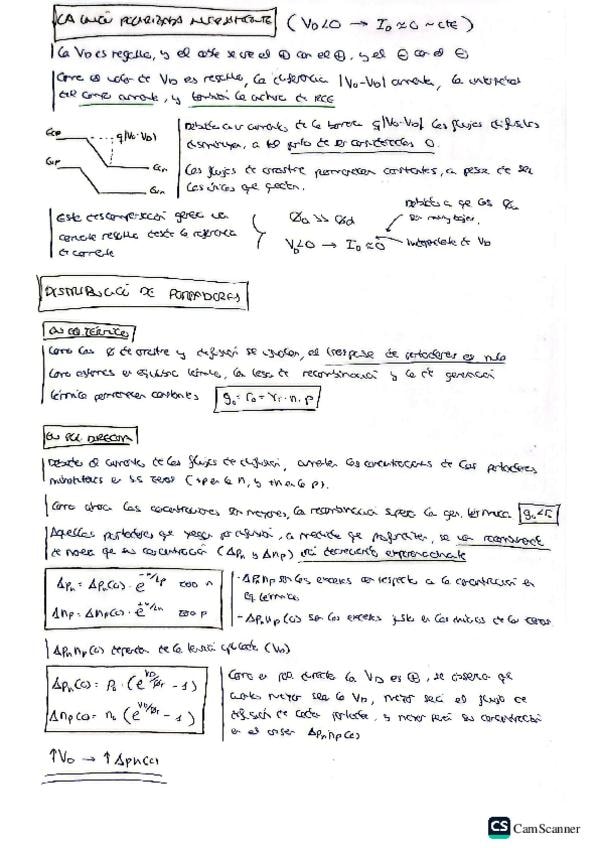 LA UNIÓN POLARIZADA INVERSAMENTE (V₀<0 → I₀≈0 ~cte)
La V₀ es negativa, y el cable se une el ⊕ con el ⊕, y el ⊖ con el ⊖
Como el valor de V₀ es negativo, la diferencia |V₀-V₀| aumenta, la intensidad
del campo aumenta, y también la anchura de RCE
Debido al aumento de la barrera q|V₀-V₀| los flujos difusivos
disminuyen, a tal punto de ser considerados 0.
q|V₀-V₀|
Los flujos de arrastre permanecen constantes, a pesar de ser
los únicos que quedan.
Esta descompensación genera una
corriente negativa desde la referencia
de corriente
Øa >> Ød
V₀<0 → I₀≈0
Debido a que los Øa
son muy bajos.
Independiente de V₀
DISTRIBUCIÓN DE PORTADORES
EN EQ. TÉRMICO
Como los Ø de arrastre y difusión se igualan, el trasvase de portadores es nulo
Como estamos en equilibrio térmico, la tasa de recombinación y la de generación
térmica permanecen constantes g₀ = r₀ = γr · n · p
EN POL DIRECTA
Debido al aumento de los flujos de difusión, aumentan las concentraciones de los portadores
minoritarios en sus zonas (p en n, y n en p).
Como ahora las concentraciones son mayores, la recombinación supera la gen. térmica g₀<r
Aquellos portadores que llegan por difusión, a medida que profundizan, se van recombinando
de manera que su concentración (Δpn y Δnp) irá decreciendo exponencialmente
Δpn = Δpn(0) · e^(-x/Lp) zona n
Δnp = Δnp(0) · e^(+x/Ln) zona p
- Δpn,np son los excesos con respecto a la concentración en
eq. térmico
- Δpn,np(0) son los excesos justo en los inicios de las zonas
Δpn,np(0) dependen de la tensión aplicada (V₀)
Δpn(0) = p₀ · (e^(V₀/φT) - 1)
Δnp(0) = n₀ (e^(V₀/φT) - 1)
Como en pol. directa la V₀ es ⊕, se observa que
cuanto mayor sea la V₀, mayor será el flujo de
difusión de cada portador, y mayor será su concentración
en el origen Δpn,np(0)
↑V₀ → ↑Δpn(0)
CS CamScanner